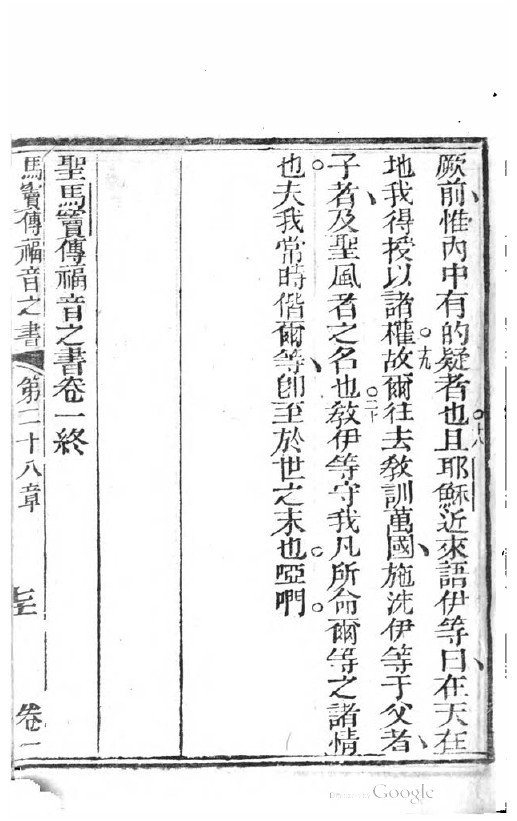 厥前惟內中有的疑者也○十八且耶穌近來語伊等曰、在天在
地我得授以諸權○十九故爾往去教訓萬國、施洗伊等于父者、
子者、及聖風者之名也○二十教伊等守我凡所命爾等之諸情
也○夫我常時偕爾等、卽至於世之末也○啞們○
聖馬竇傳福音之書卷一終
馬竇傳福音之書 第二十八章 卷一
Digitized by Google